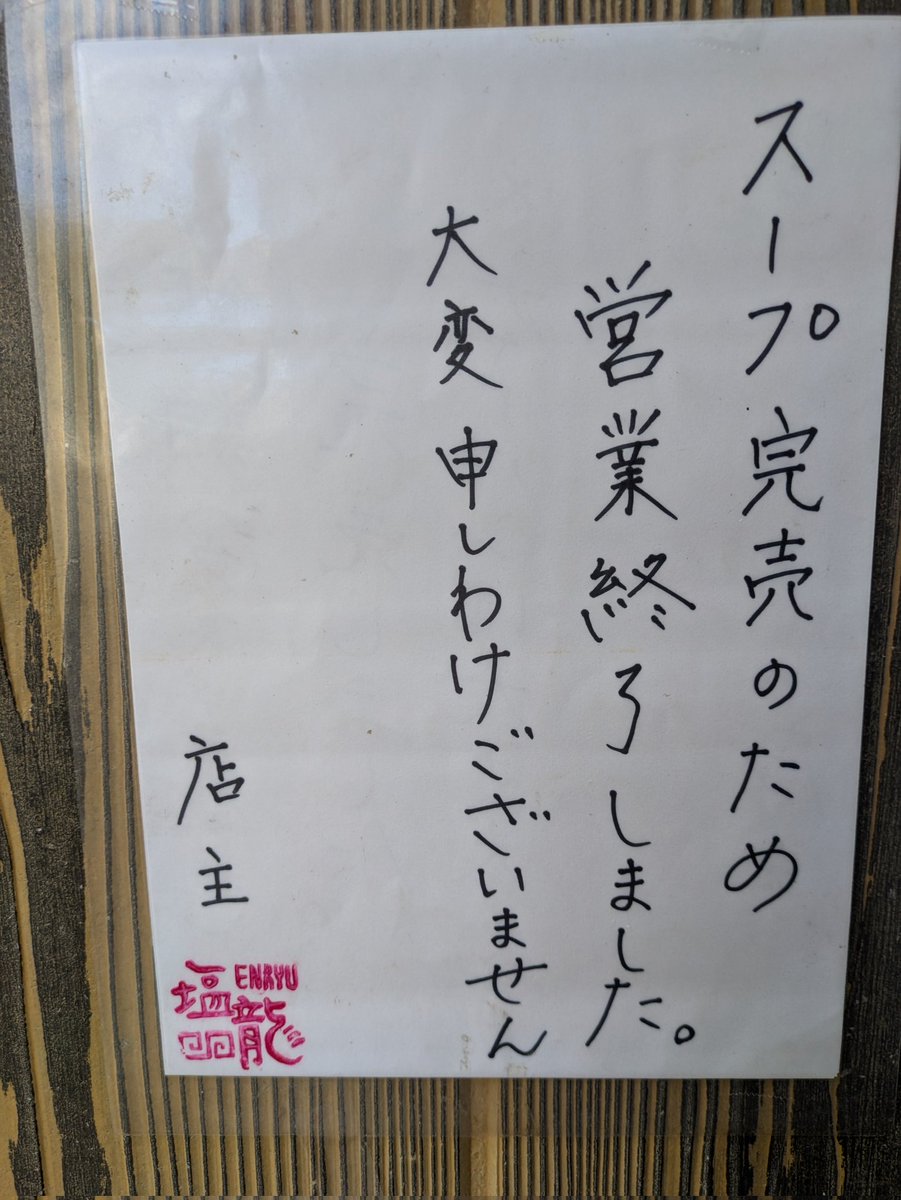 スープ完売のため
営業終了しました。
大変申しわけございません
店主
ENRYU
塩龍